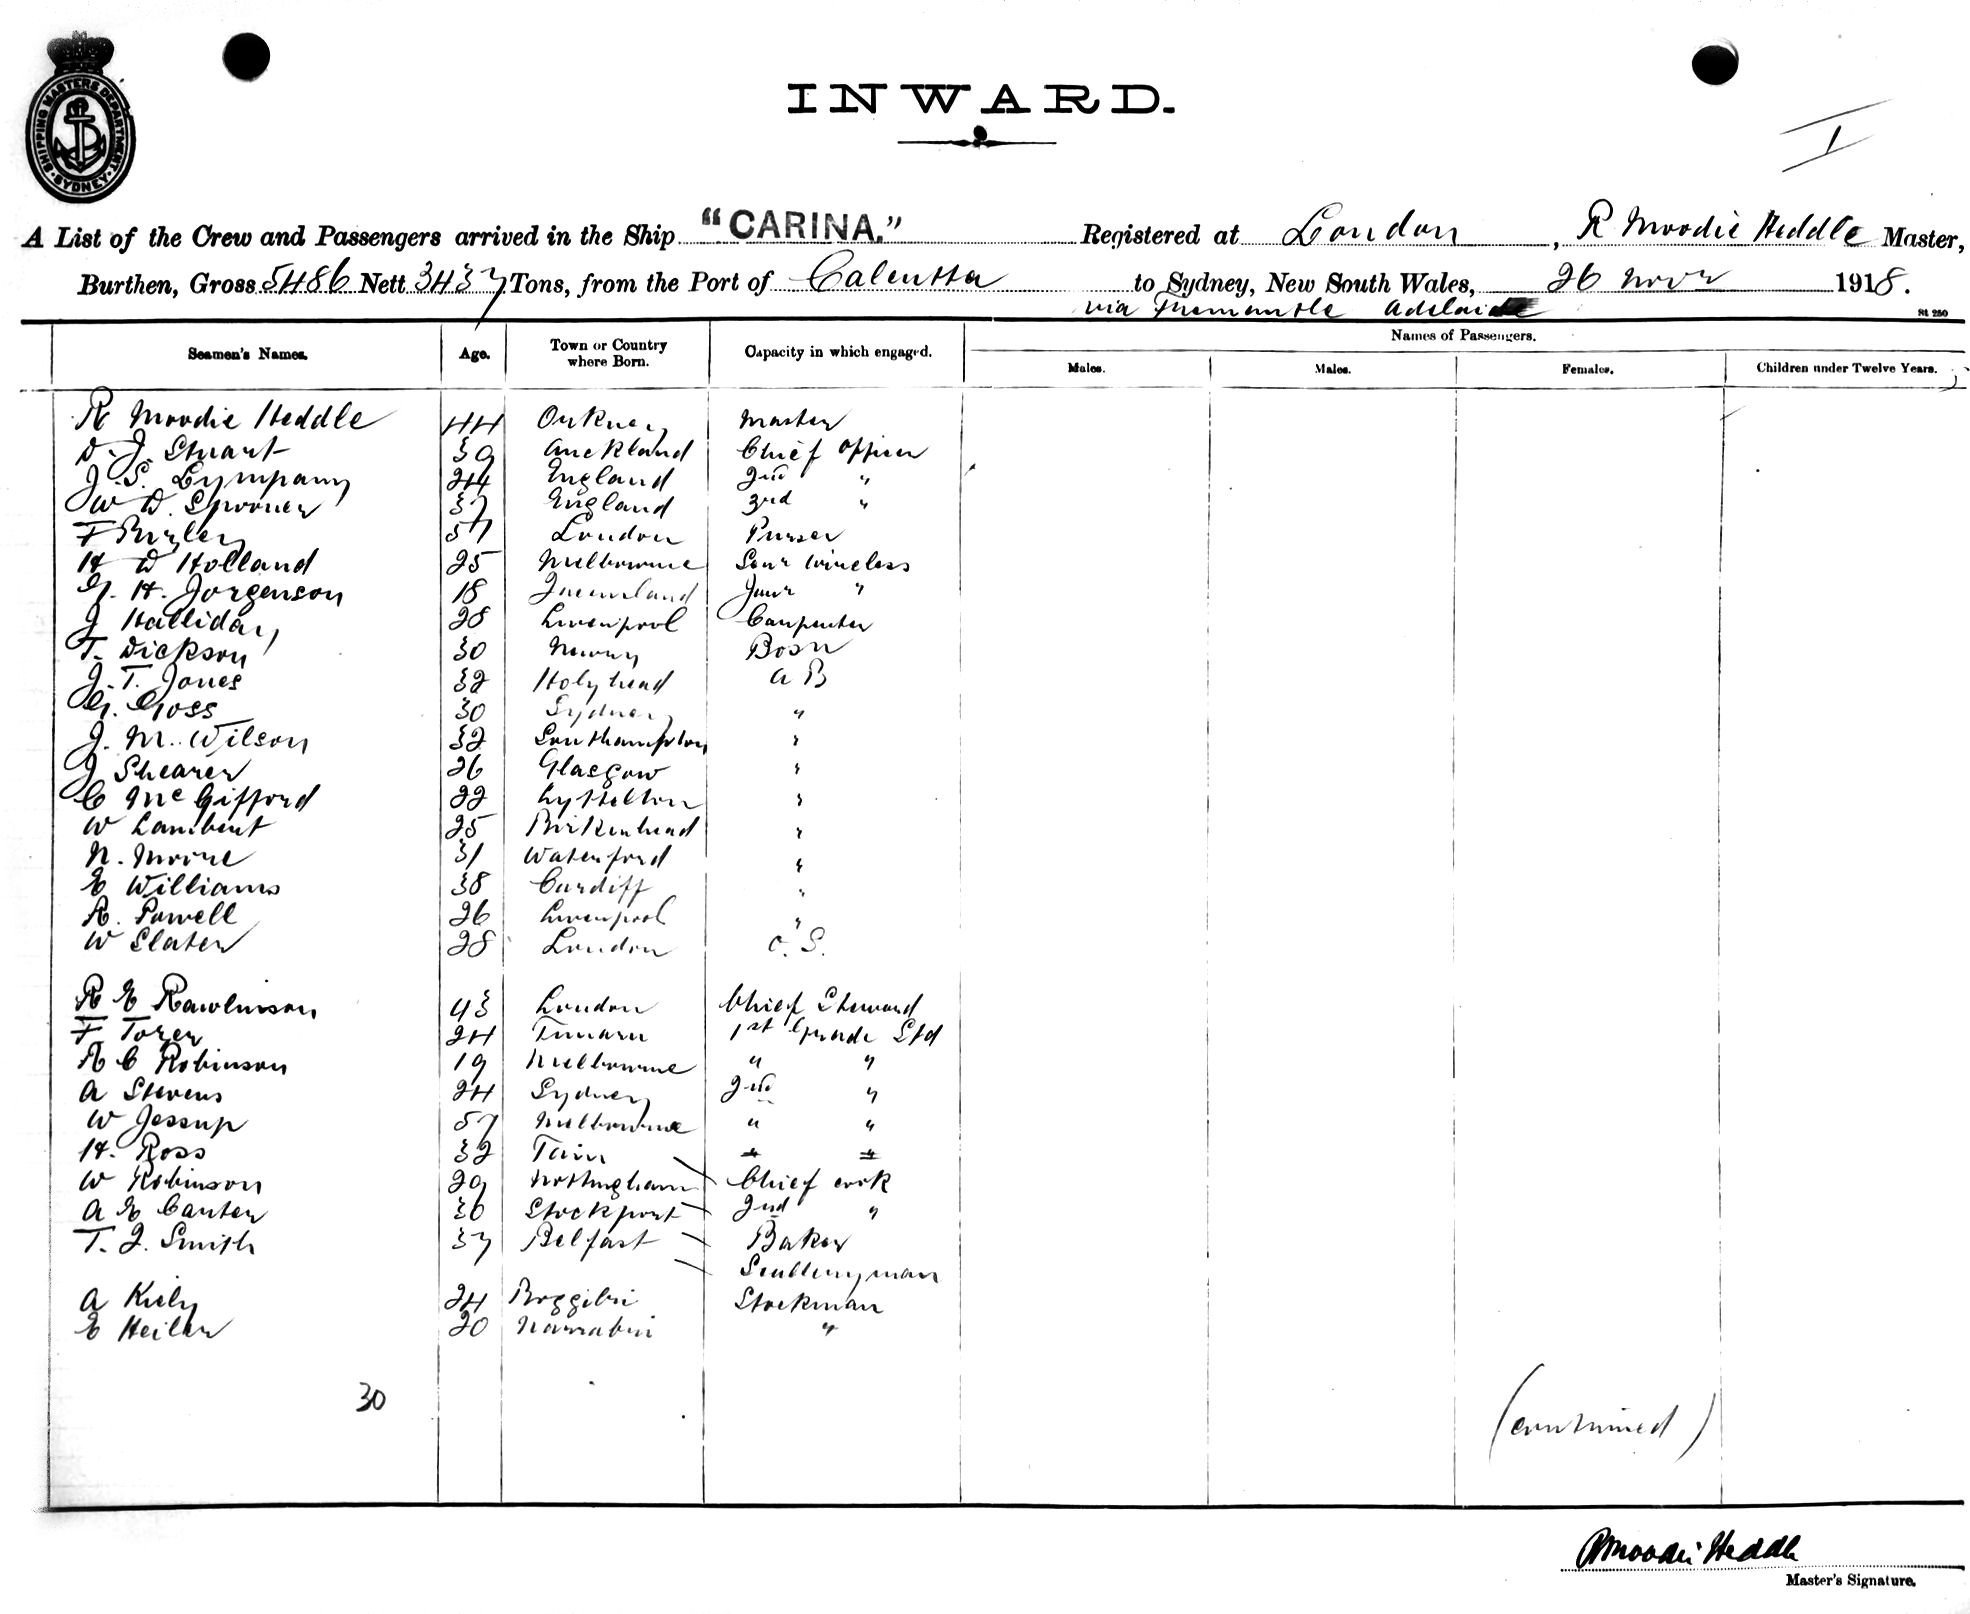 SHIPPING MASTERS DEPARTMENT. SYDNEY
INWARD.
I
A List of the Crew and Passengers arrived in the Ship "CARINA." Registered at London, R Moodie Heddle Master,
Burthen, Gross 5486 Nett 3437 Tons, from the Port of Calcutta to Sydney, New South Wales, 26 Novr 1918.
via Fremantle Adelaide
St 250
Names of Passengers.
Seamen's Names. Age. Town or Country where Born. Capacity in which engaged. Males. Males. Females. Children under Twelve Years.
R Moodie Heddle 44 Orkney Master
D. J. Stuart 39 Auckland Chief Officer
J. S. Lympany 24 England 2nd "
W D. Spooner 37 England 3rd "
F 57 London Purser
H D Holland 25 Melbourne Senr Wireless
G. H. Jorgenson 18 Queensland Junr "
J Halliday 28 Liverpool Carpenter
T. Dickson 30 Newry Bosn
J. T. Jones 32 Holyhead A B
G. Goss 30 Sydney "
J. M. Wilson 32 Southampton "
J Shearer 26 Glasgow "
C McGifford 22 Lyttelton "
W Lambert 25 Birkenhead "
N. Moore 31 Waterford "
E Williams 38 Cardiff "
R. Powell 26 Liverpool "
W Slater 28 London O. S.
R E Rawlinson 43 London Chief Steward
F Tozer 24 Timaru 1st Grade Std
R C Robinson 19 Melbourne " "
A Stevens 24 Sydney 2nd "
W Jessup 57 Melbourne " "
H. Ross 32 Tain " "
W Robinson 29 Nottingham Chief cook
A E Canter 36 Stockport 2nd "
T. J. Smith 37 Belfast Baker
Sculleryman
A Kiely 24 Boggabri Stockman
E Heiler 20 Narrabri "
30
(continued)
R Moodie Heddle
Master's Signature.